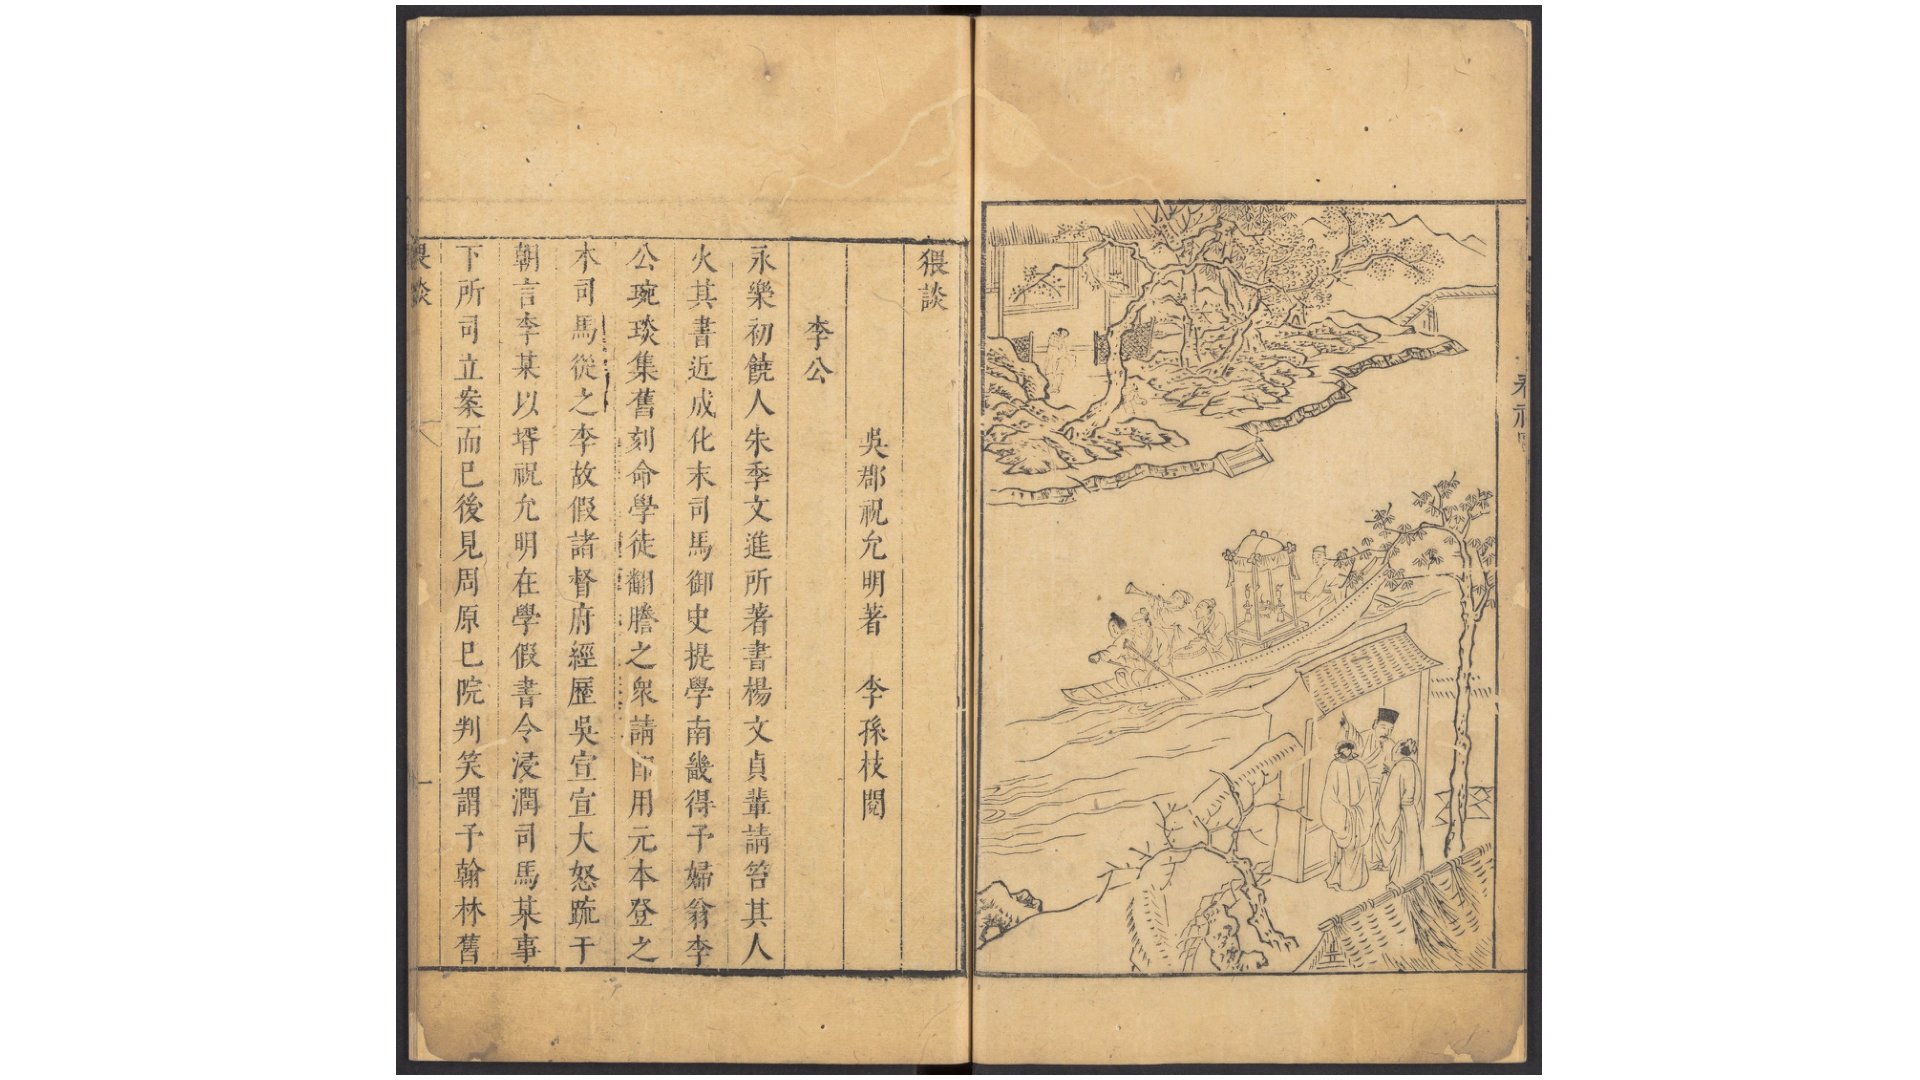 猥談
吳郡祝允明著　李孫枝閱
李公
永樂初饒人朱季文進所著書楊文貞輩請笞其人
火其書近成化末司馬御史提學南畿得予婦翁李
公琬琰集舊刻命學徒翻謄之衆請即用元本登之
木司馬從之李故假諸督府經歷吳宣宣大怒疏于
朝言李某以壻祝允明在學假書令浸潤司馬某事
下所司立案而已後見周原已院判笑謂予翰林舊
猥談
一